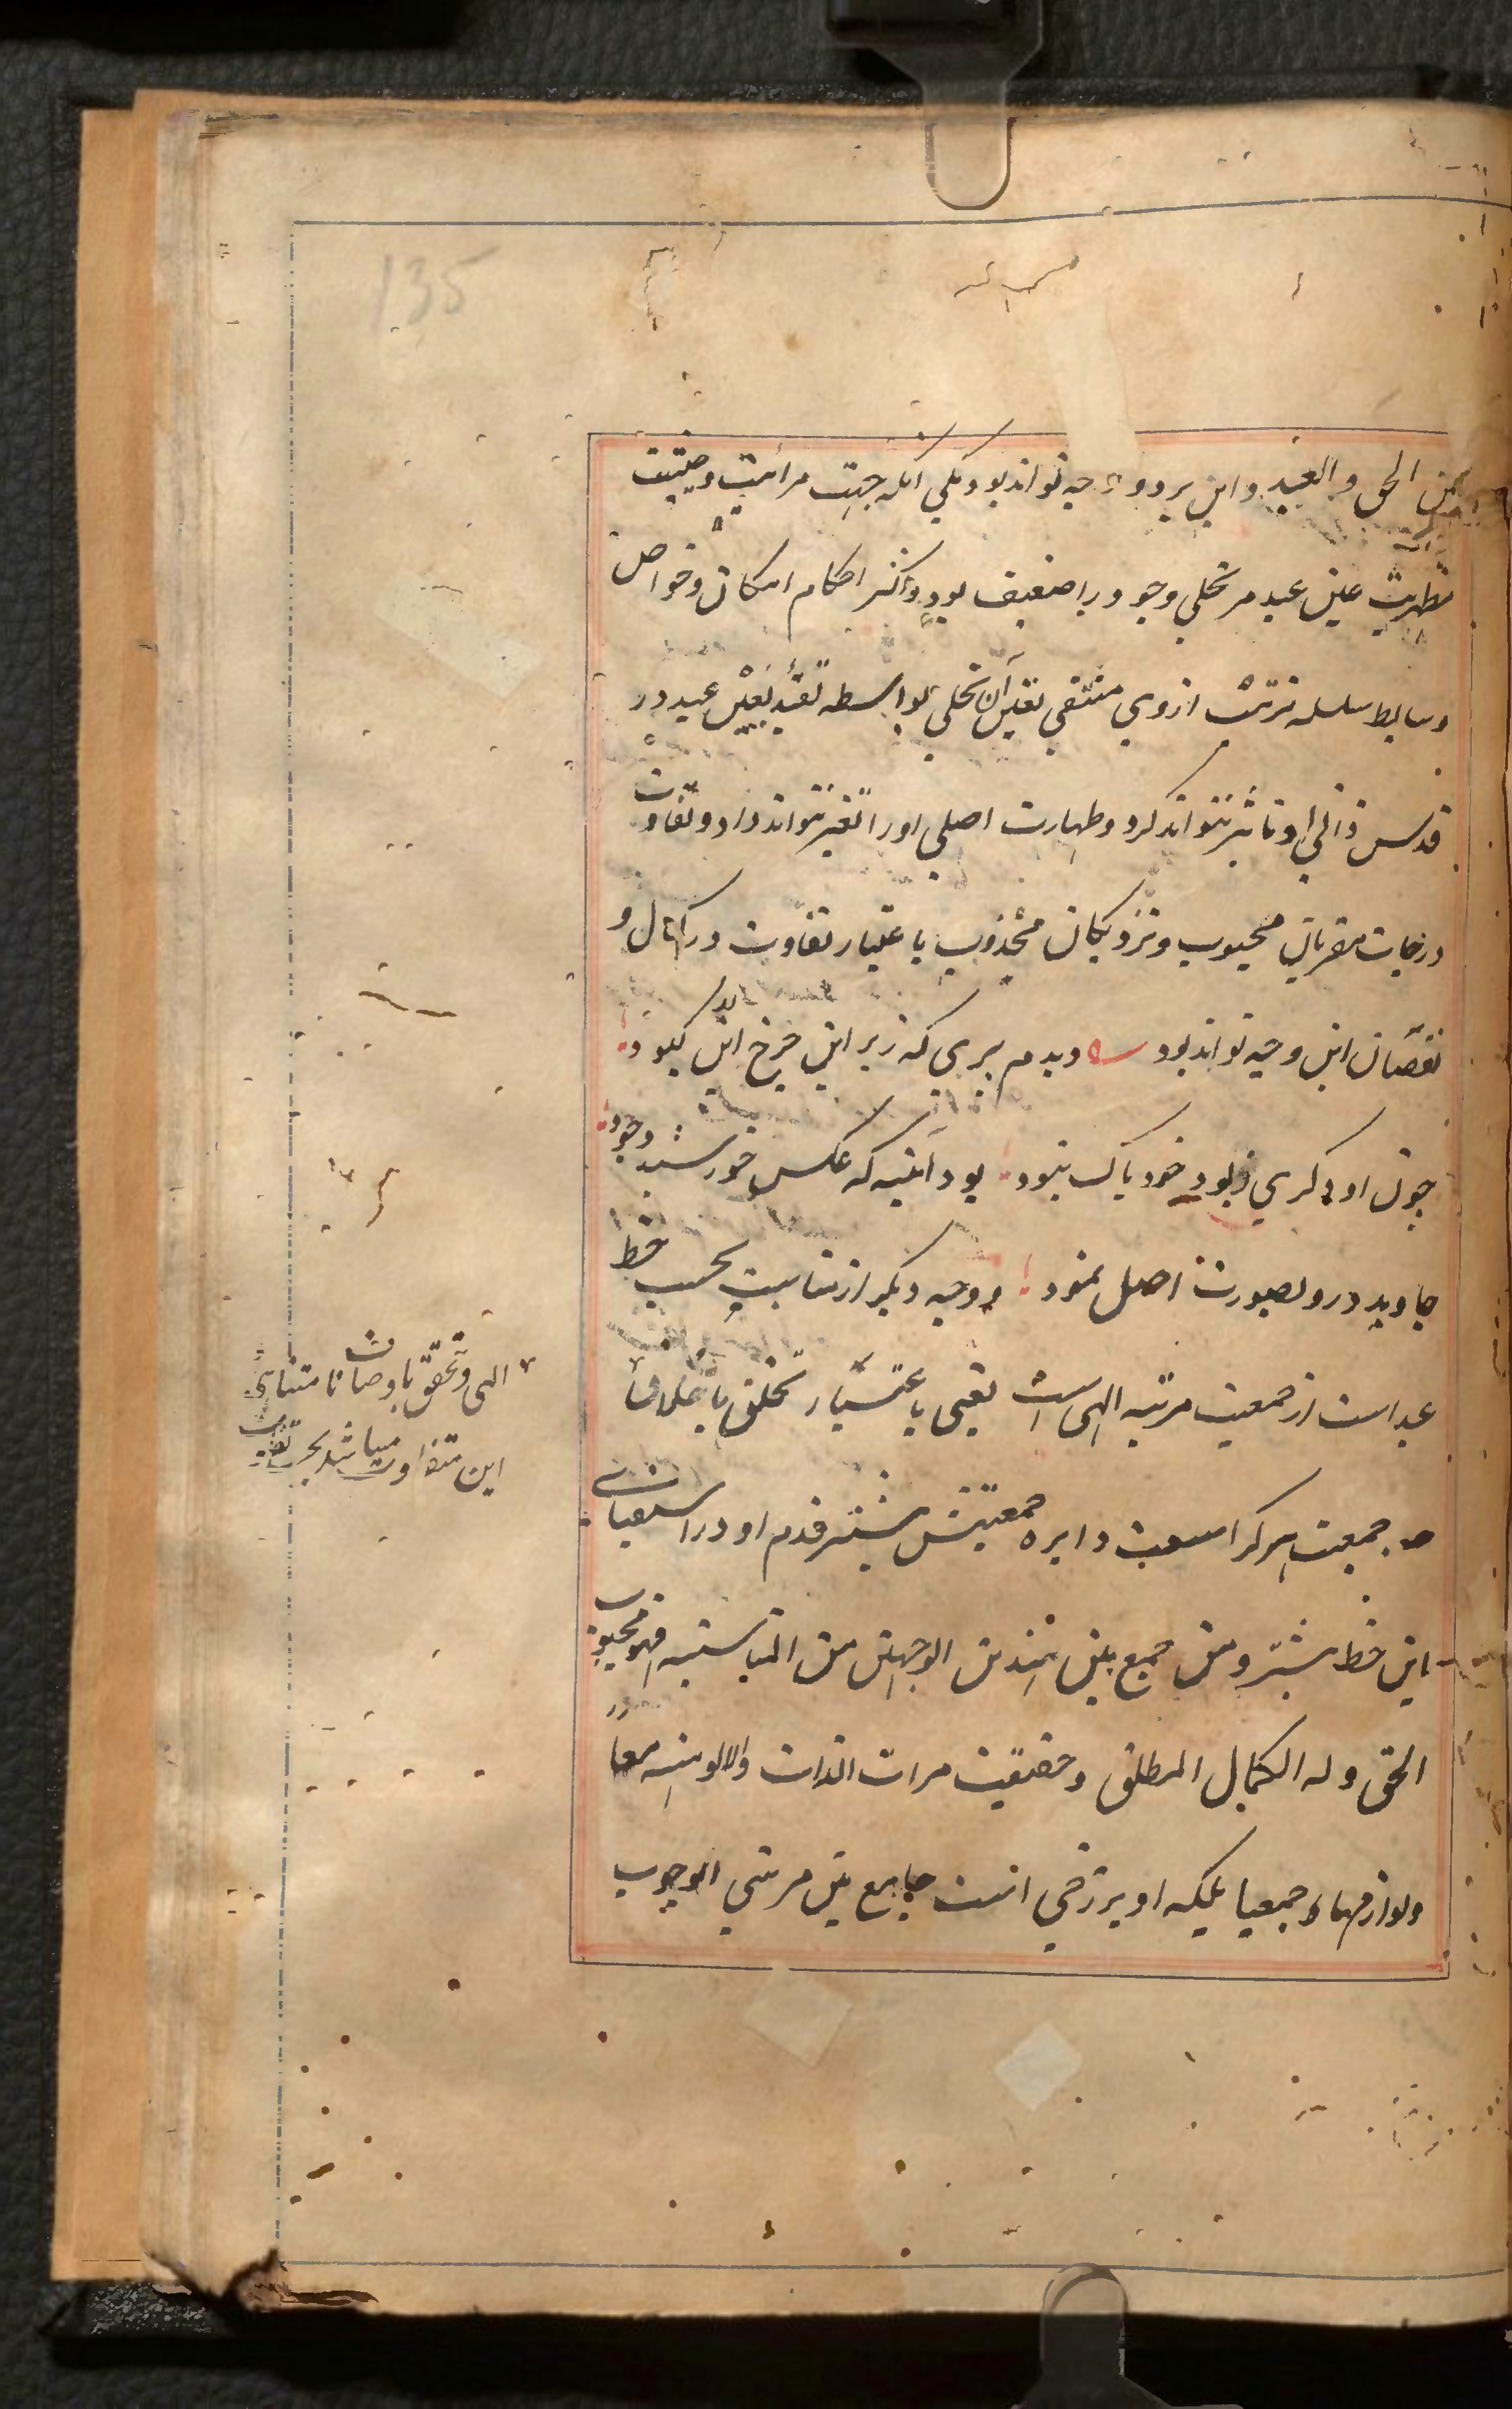 بین الحق و العبد و این بر دو وجه تواند بود یکی انکه جهت مرآتیت و حیثیت
مظهریت عین عبد مر تجلی وجودیرا ضعیف بود و اکثر احکام امکان و خواص
وسایط سلسله ترتیب از وی منتفی تعین آن تجلی بواسطه تقید بعین عبد در
قدس ذاتی او تاثیر نتواند کرد و طهارت اصلی او را تغیر نتواند داد و تفاوت
درجات مقربان محبوب و نزدیکان مجذوب باعتبار تفاوت در کمال و
نقصان این وجه تواند بود دیدم پیری که زیر این چرخ کبود
چون او دگری ز بود خود پاک نبود بود آئینه که عکس خورشید وجود
جاوید درو بصورت اصل نمود و وجه دیگر از مناسبت بحسب حظ
عبد است از جمعیت مرتبه الهی است یعنی باعتبار تخلق باخلاق
الهی و تحقق باوصاف نامتناهی
این متفاوت میباشد بحسب تفاوت
جمعیت هر کرا سعت دایره جمعیتش بیشتر قدم او در استیعاب
این حظ بیشتر و من جمع بین هذین الوجهین من المناسبة فهو محبوب
الحق و له الکمال المطلق و حقیقت مرآت الذات و الالوهیه معا
و لوازمها جمیعا بلکه او برزخی است جامع بین مرتبتی الوجوب
135